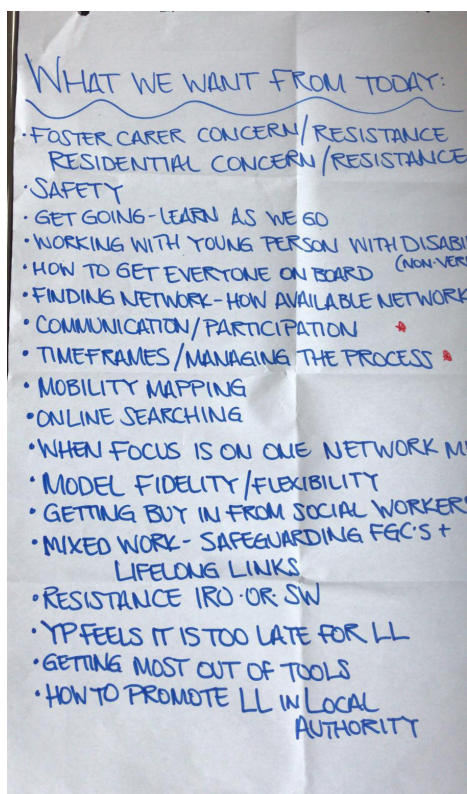 WHAT WE WANT FROM TODAY:
· FOSTER CARER CONCERN/RESISTANCE
RESIDENTIAL CONCERN/RESISTANCE
· SAFETY
· GET GOING - LEARN AS WE GO
· WORKING WITH YOUNG PERSON WITH
· HOW TO GET EVERYONE ON BOARD
· FINDING NETWORK - HOW AVAILABLE NETWORK
· COMMUNICATION/PARTICIPATION
· TIMEFRAMES/MANAGING THE PROCESS
· MOBILITY MAPPING
· ONLINE SEARCHING
· WHEN FOCUS IS ON ONE NETWORK
· MODEL FIDELITY/FLEXIBILITY
· GETTING BUY IN FROM SOCIAL WORKERS
· MIXED WORK - SAFEGUARDING FGC'S +
LIFELONG LINKS
· RESISTANCE IRO · OR · SW
· YP FEELS IT IS TOO LATE FOR LL
· GETTING MOST OUT OF TOOLS
· HOW TO PROMOTE LL IN LOCAL
AUTHORITY